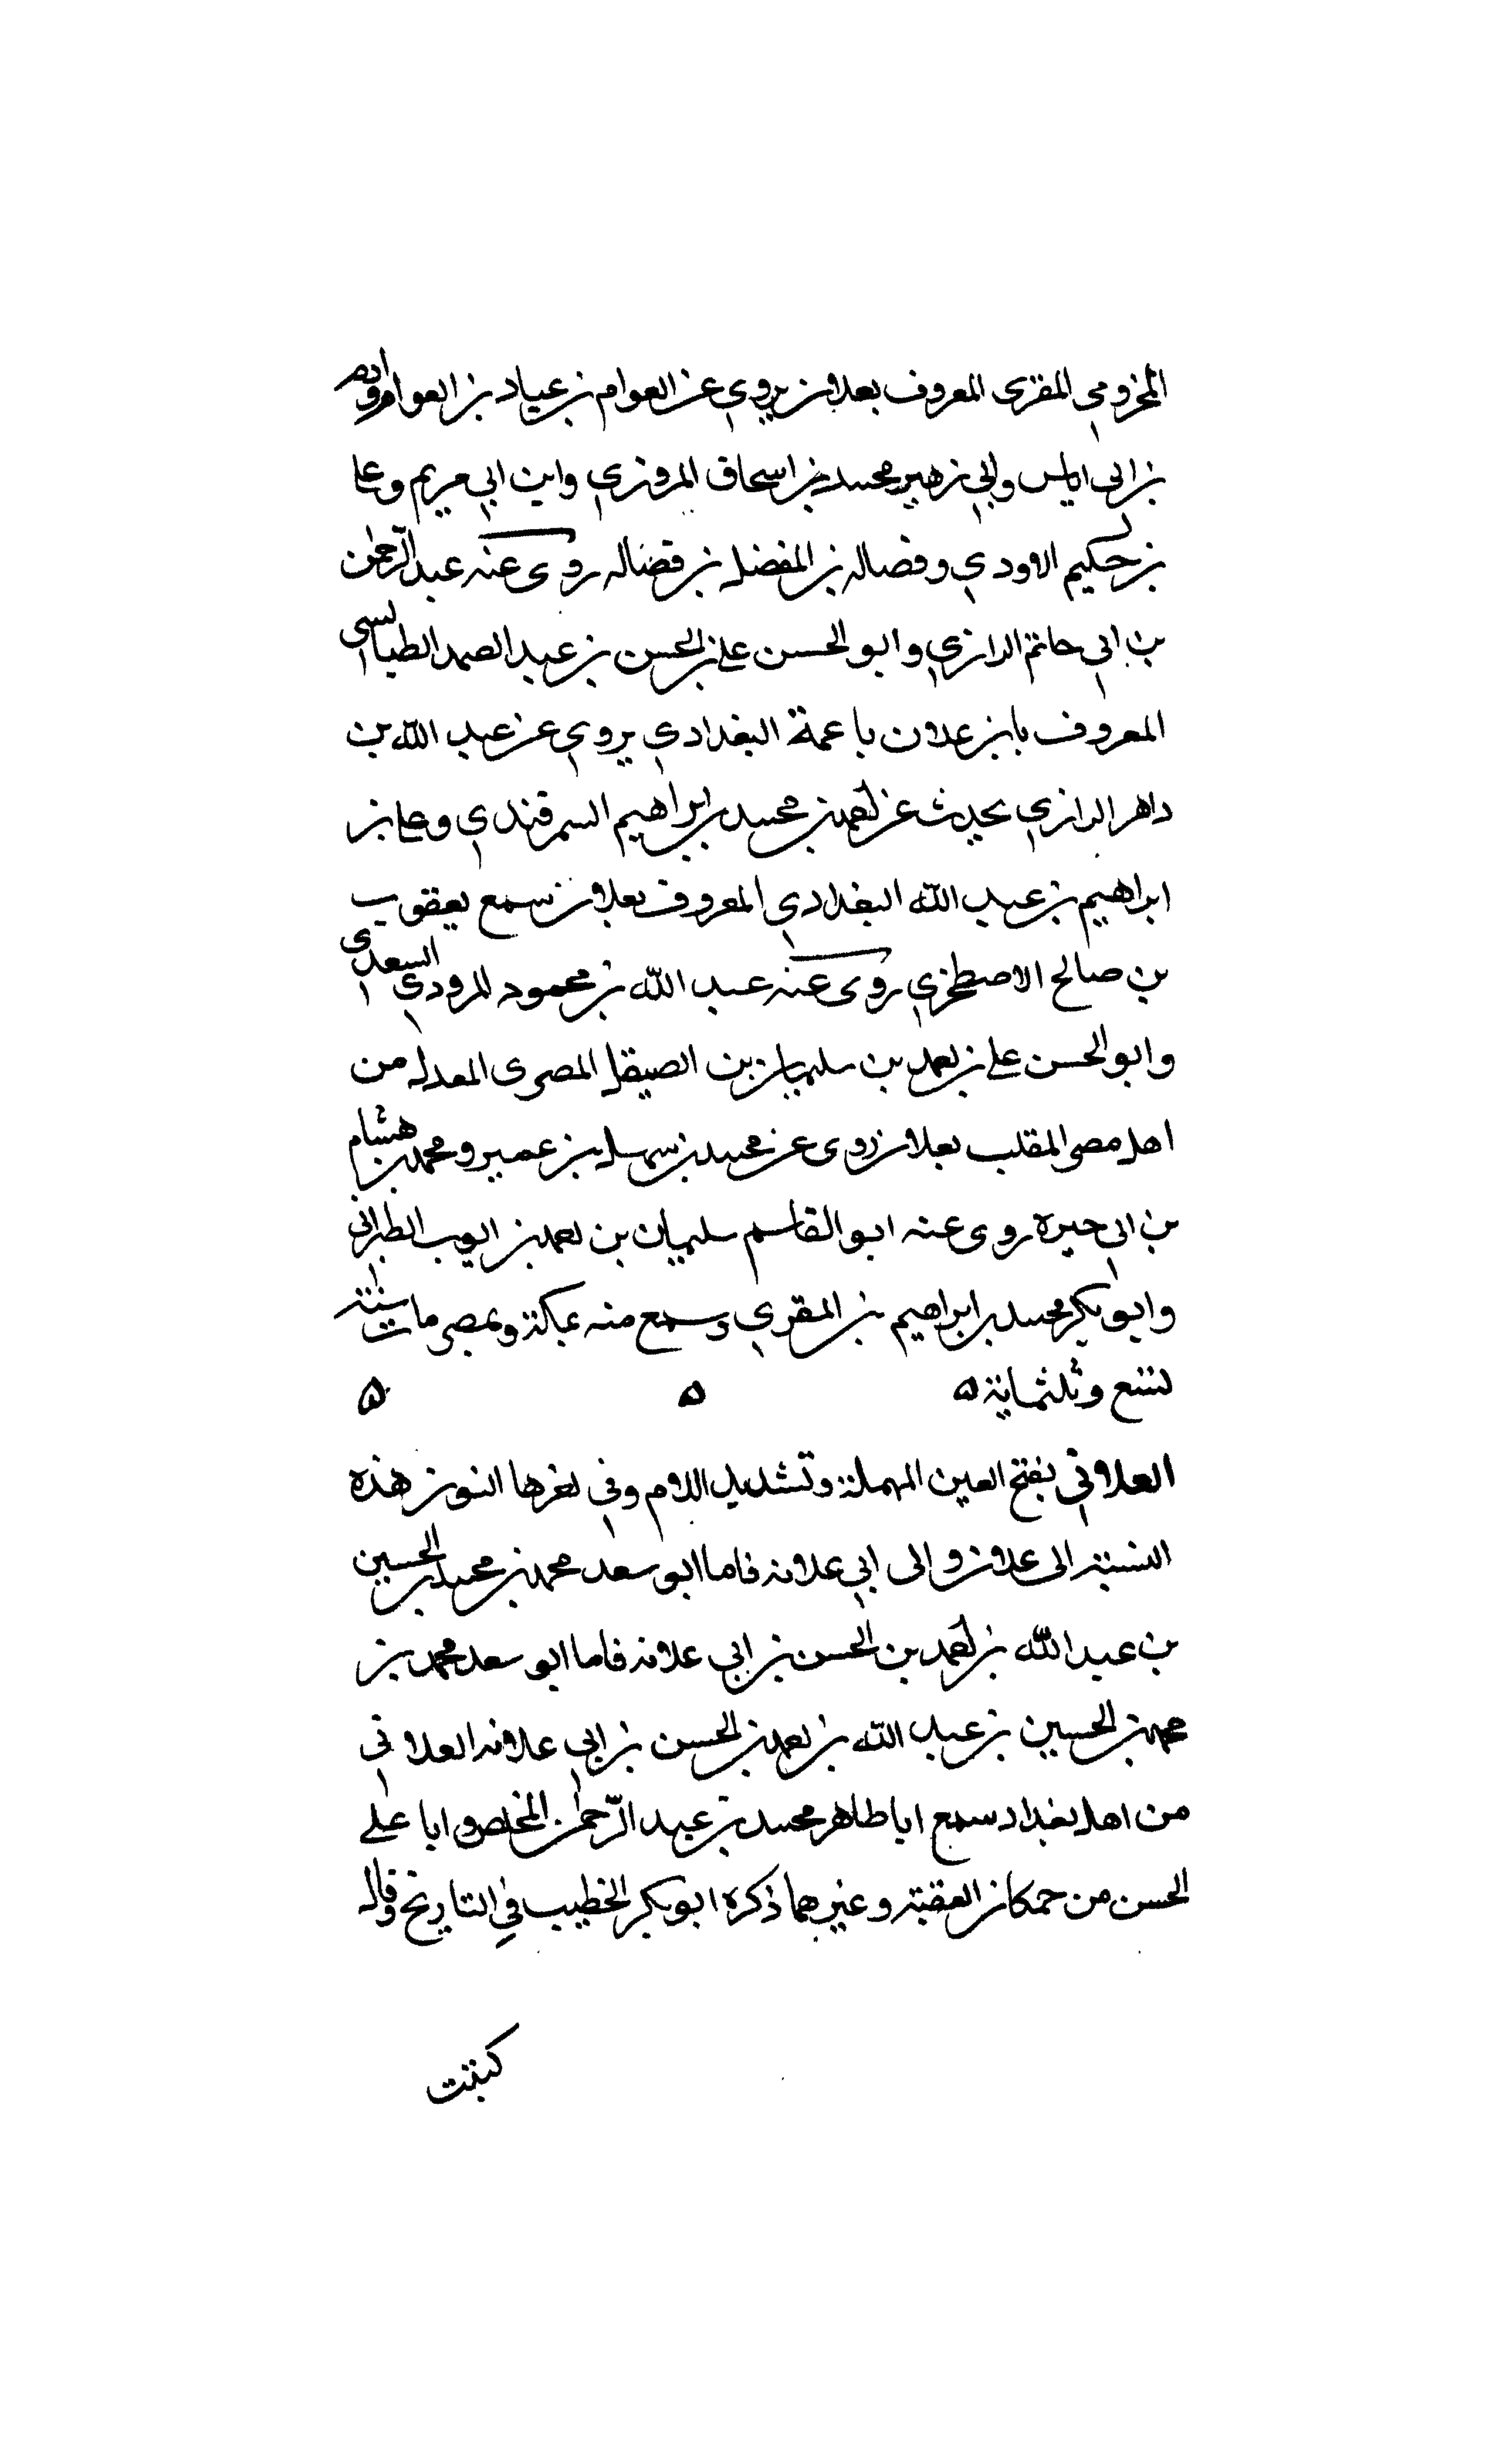 المخزومي المقرى المعروف بعلان يروي عن العوام بن عباد بن العوام وادم
بن ابي اياس وابي زهير محمد بن اسحاق المروزي وابن ابي مريم وعلي
بن حكيم الاودي وفضاله بن المفضل بن فضاله روى عنه عبد الرحمن
بن ابي حاتم الرازي وابو الحسن علي بن الحسن بن عبد الصمد الطيالسي
المعروف بابن علان باعمة البغدادي يروي عن عبد الله بن
داهر الرازي يحدث عن احمد بن محمد بن ابراهيم السمرقندي وعلي بن
ابراهيم بن عبد الله البغدادي المعروف بعلان سمع يعقوب
بن صالح الاصطخري روى عنه عبد الله بن محمود المرودي السعدي
وابو الحسن علي بن احمد بن سليمان بن الصيقل المصرى المعدل من
اهل مصر الملقب بعلان روى عن محمد بن سهل بن عمير ومحمد بن هشام
بن ابي خيره روى عنه ابو القاسم سليمان بن احمد بن ايوب الطبراني
وابو بكر محمد بن ابراهيم بن المقري وسمع منه بمكة وبمصر مات سنة
تسع وثلثماية ه ه ه
العلاني بفتح العين المهملة وتشديد اللام وفي اخرها النون هذه
النسبة الى علان والى ابي علانه فاما ابو سعد محمد بن محمد بن الحسين
بن عبد الله بن احمد بن الحسن بن ابي علانه فاما ابو سعد محمد بن
محمد بن الحسين بن عبد الله بن احمد بن الحسن بن ابي علانه العلاني
من اهل بغداد سمع ابا طاهر محمد بن عبد الرحمن المخلص و ابا علي
الحسن من حمكان الفقيه وغيرهما ذكره ابو بكر الخطيب في التاريخ وقال
كتبت